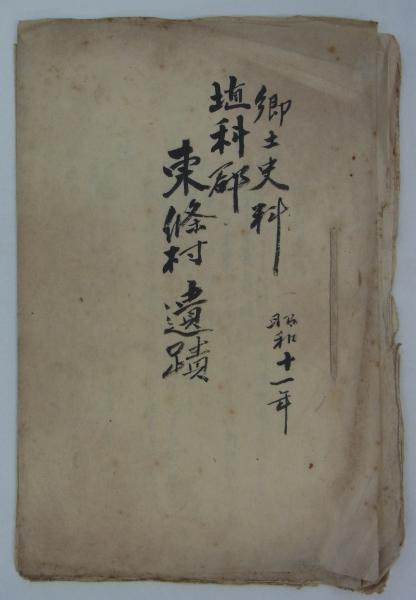 郷土史料
昭和十一年
埴科郡
東條村遺蹟